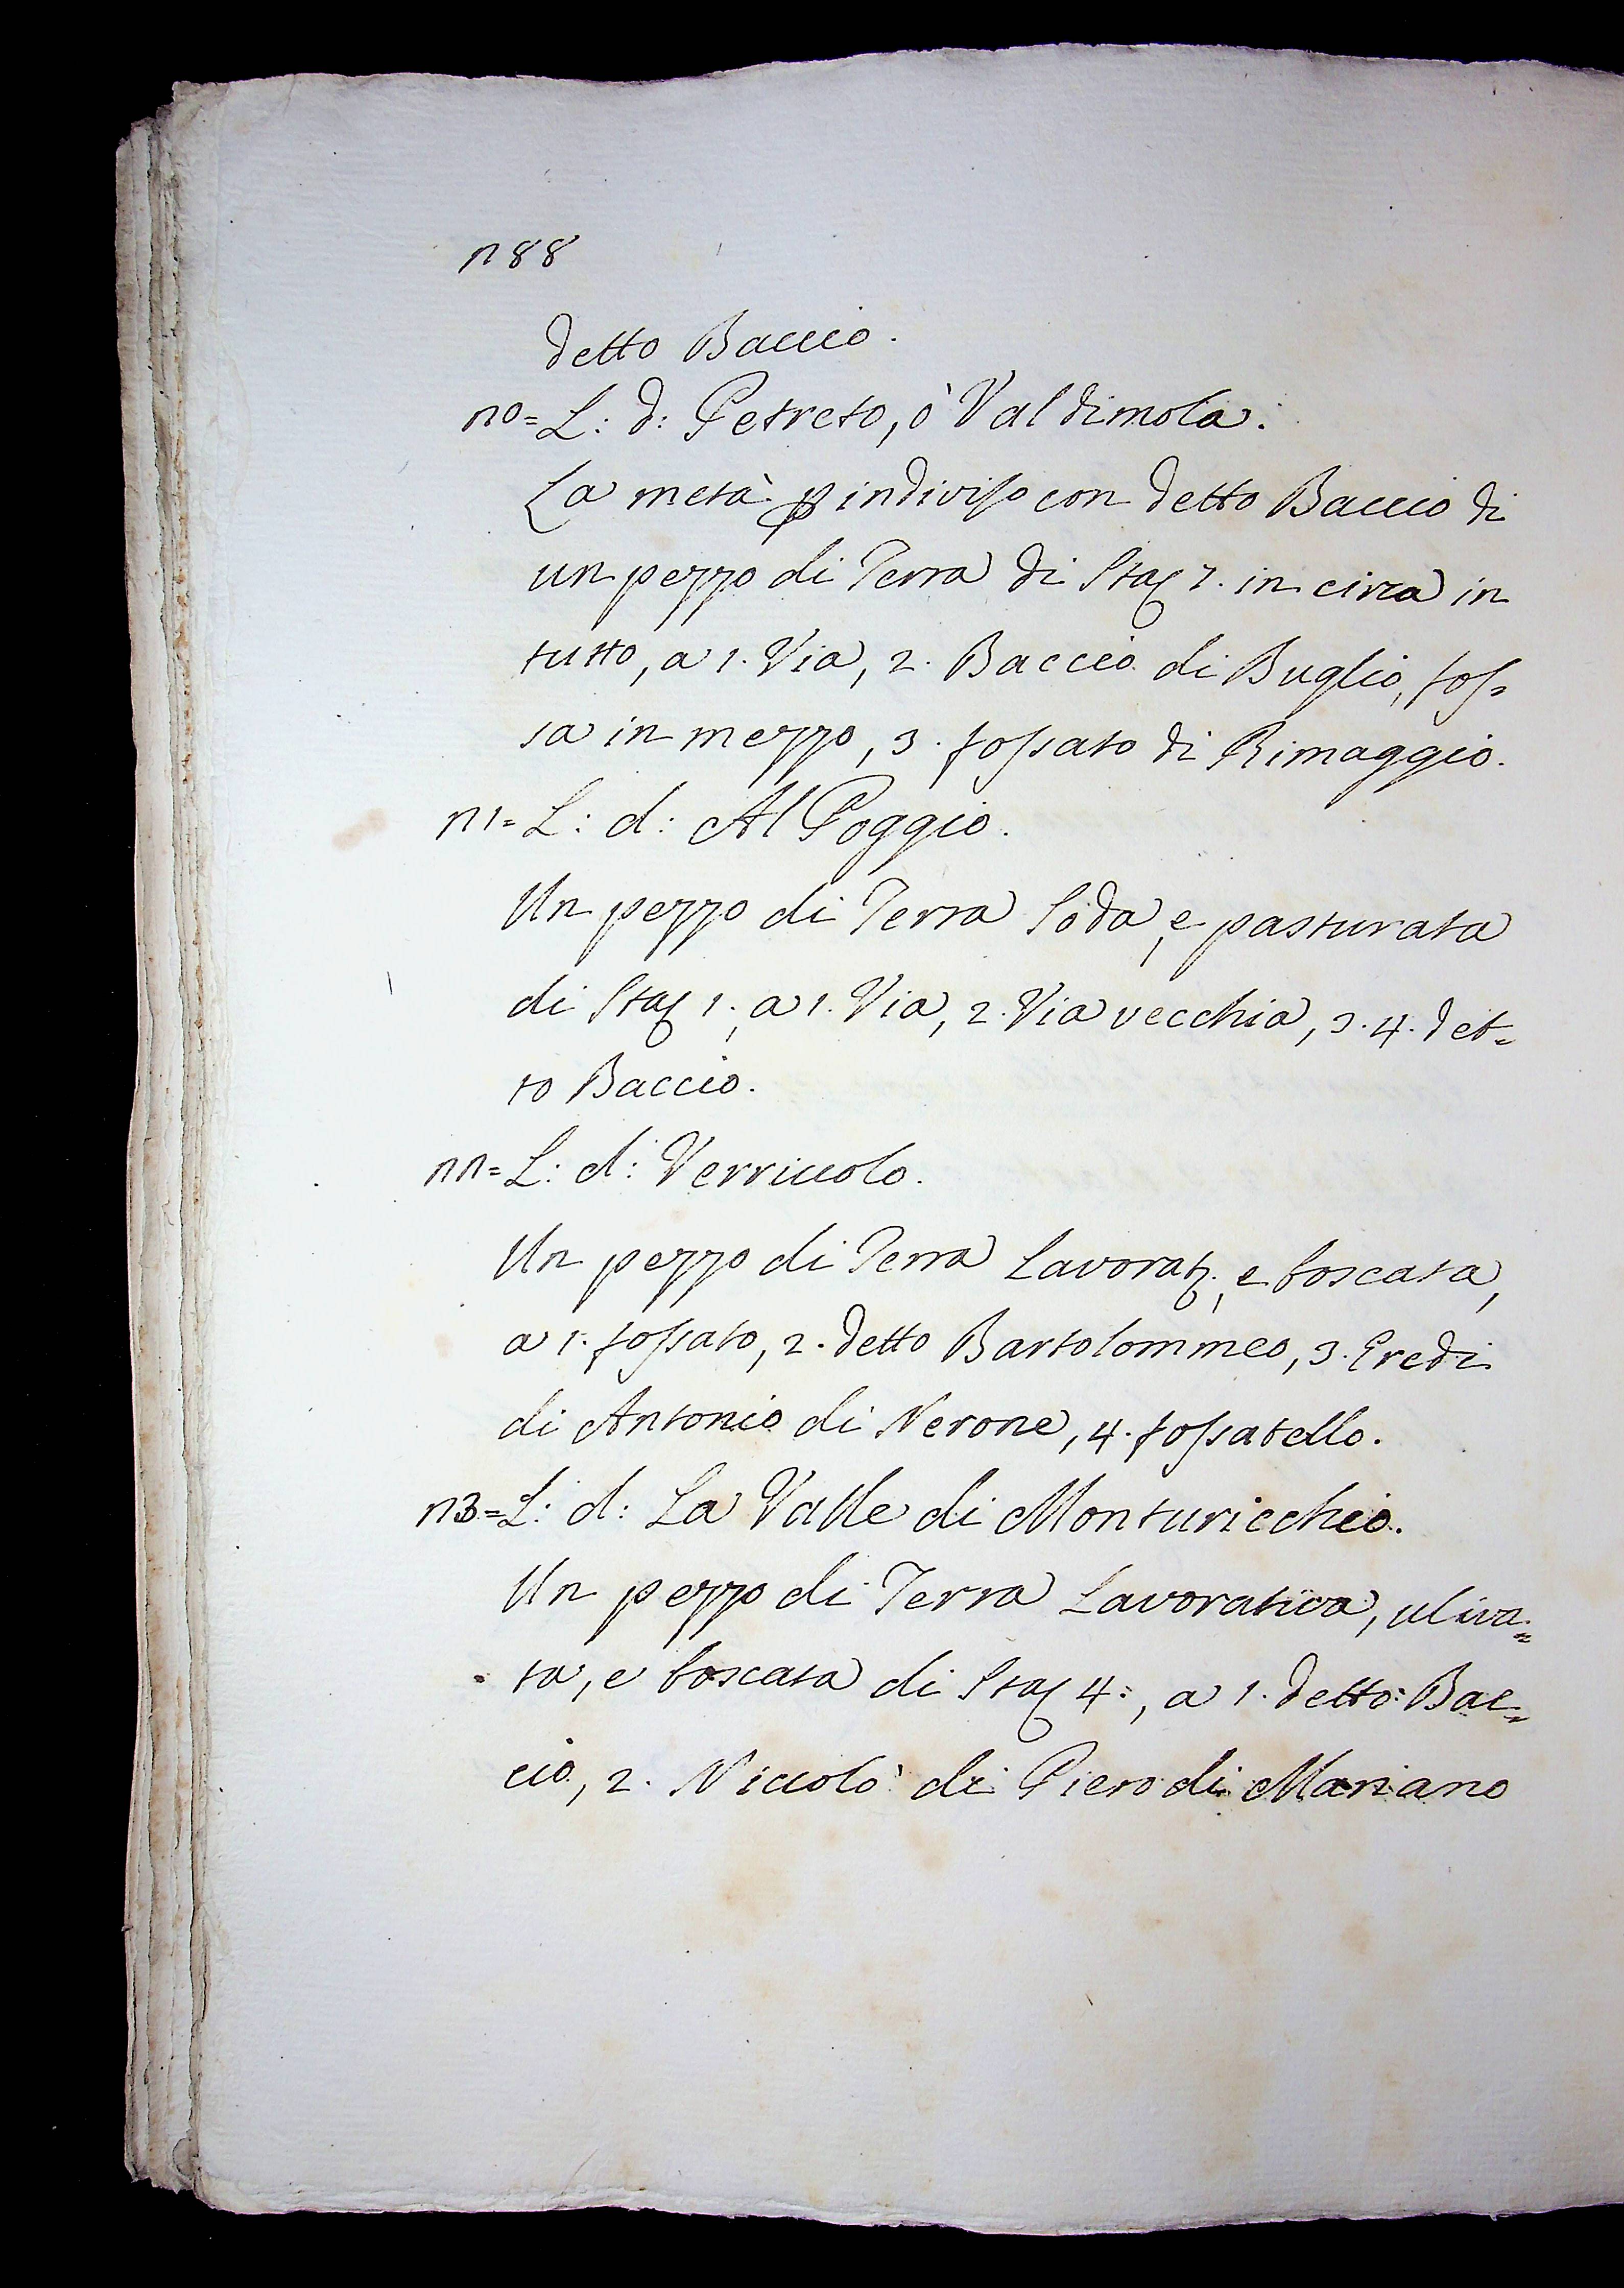 288
detto Baccio.
20= L: d: Petreto, ò Valdimola.
La metà p indiviso con detto Baccio di
un pezzo di Terra di Sta 7. in circa in
tutto, a 1. Via, 2. Baccio di Buglio, fos=
sa in mezzo, 3. fossato di Rimaggio.
21= L: d: Al Poggio.
Un pezzo di Terra Soda, e pasturata
di Sta 1., a 1. Via, 2. Via vecchia, 3. 4. det=
to Baccio.
22= L: d: Verriccolo.
Un pezzo di Terra Lavorat., e boscata,
a 1. fossato, 2. detto Bartolommeo, 3. Eredi
di Antonio di Nerone, 4. fossatello.
23= L: d: La Valle di Monturicchio.
Un pezzo di Terra Lavorativa, uliva=
ta, e boscata di Sta 4., a 1. detto Bac=
cio, 2. Niccolò di Piero di Mariano